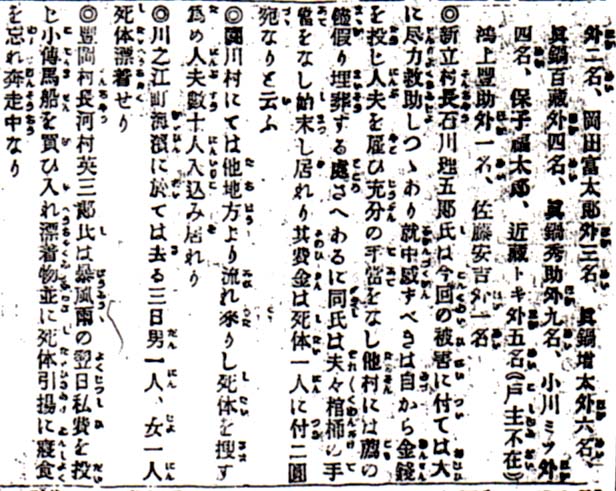 外二名、岡田富太郎外三名、眞鍋増太外六名、
眞鍋百藏外四名、眞鍋秀助外九名、小川ミツ外
四名、保子福太郎、近藏トキ外五名(戸主不在)
鴻上豐助外一名、佐藤安吉外一名
◎新立村長石川理五郎氏は今回の被害に付ては大
に尽力救助しつゝあり就中感ずべきは自から金錢
を投じ人夫を雇ひ充分の手當をなし他村には薦の
儘假り埋葬する處さへあるに同氏は夫々棺桶の手
當をなし始末し居れり其費金は死体一人に付二圓
宛なりと云ふ
◎關川村にては他地方より流れ來りし死体を搜す
爲め人夫數十人入込み居れり
◎川之江町海濱に於ては去る三日男一人、女一人
死体漂着せり
◎豐岡村長河村英三郎氏は暴風雨の翌日私費を投
じ小傳馬船を買ひ入れ漂着物並に死体引揚に寢食
を忘れ奔走中なり